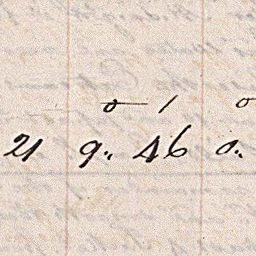 o / o
21 9.. 46 0..